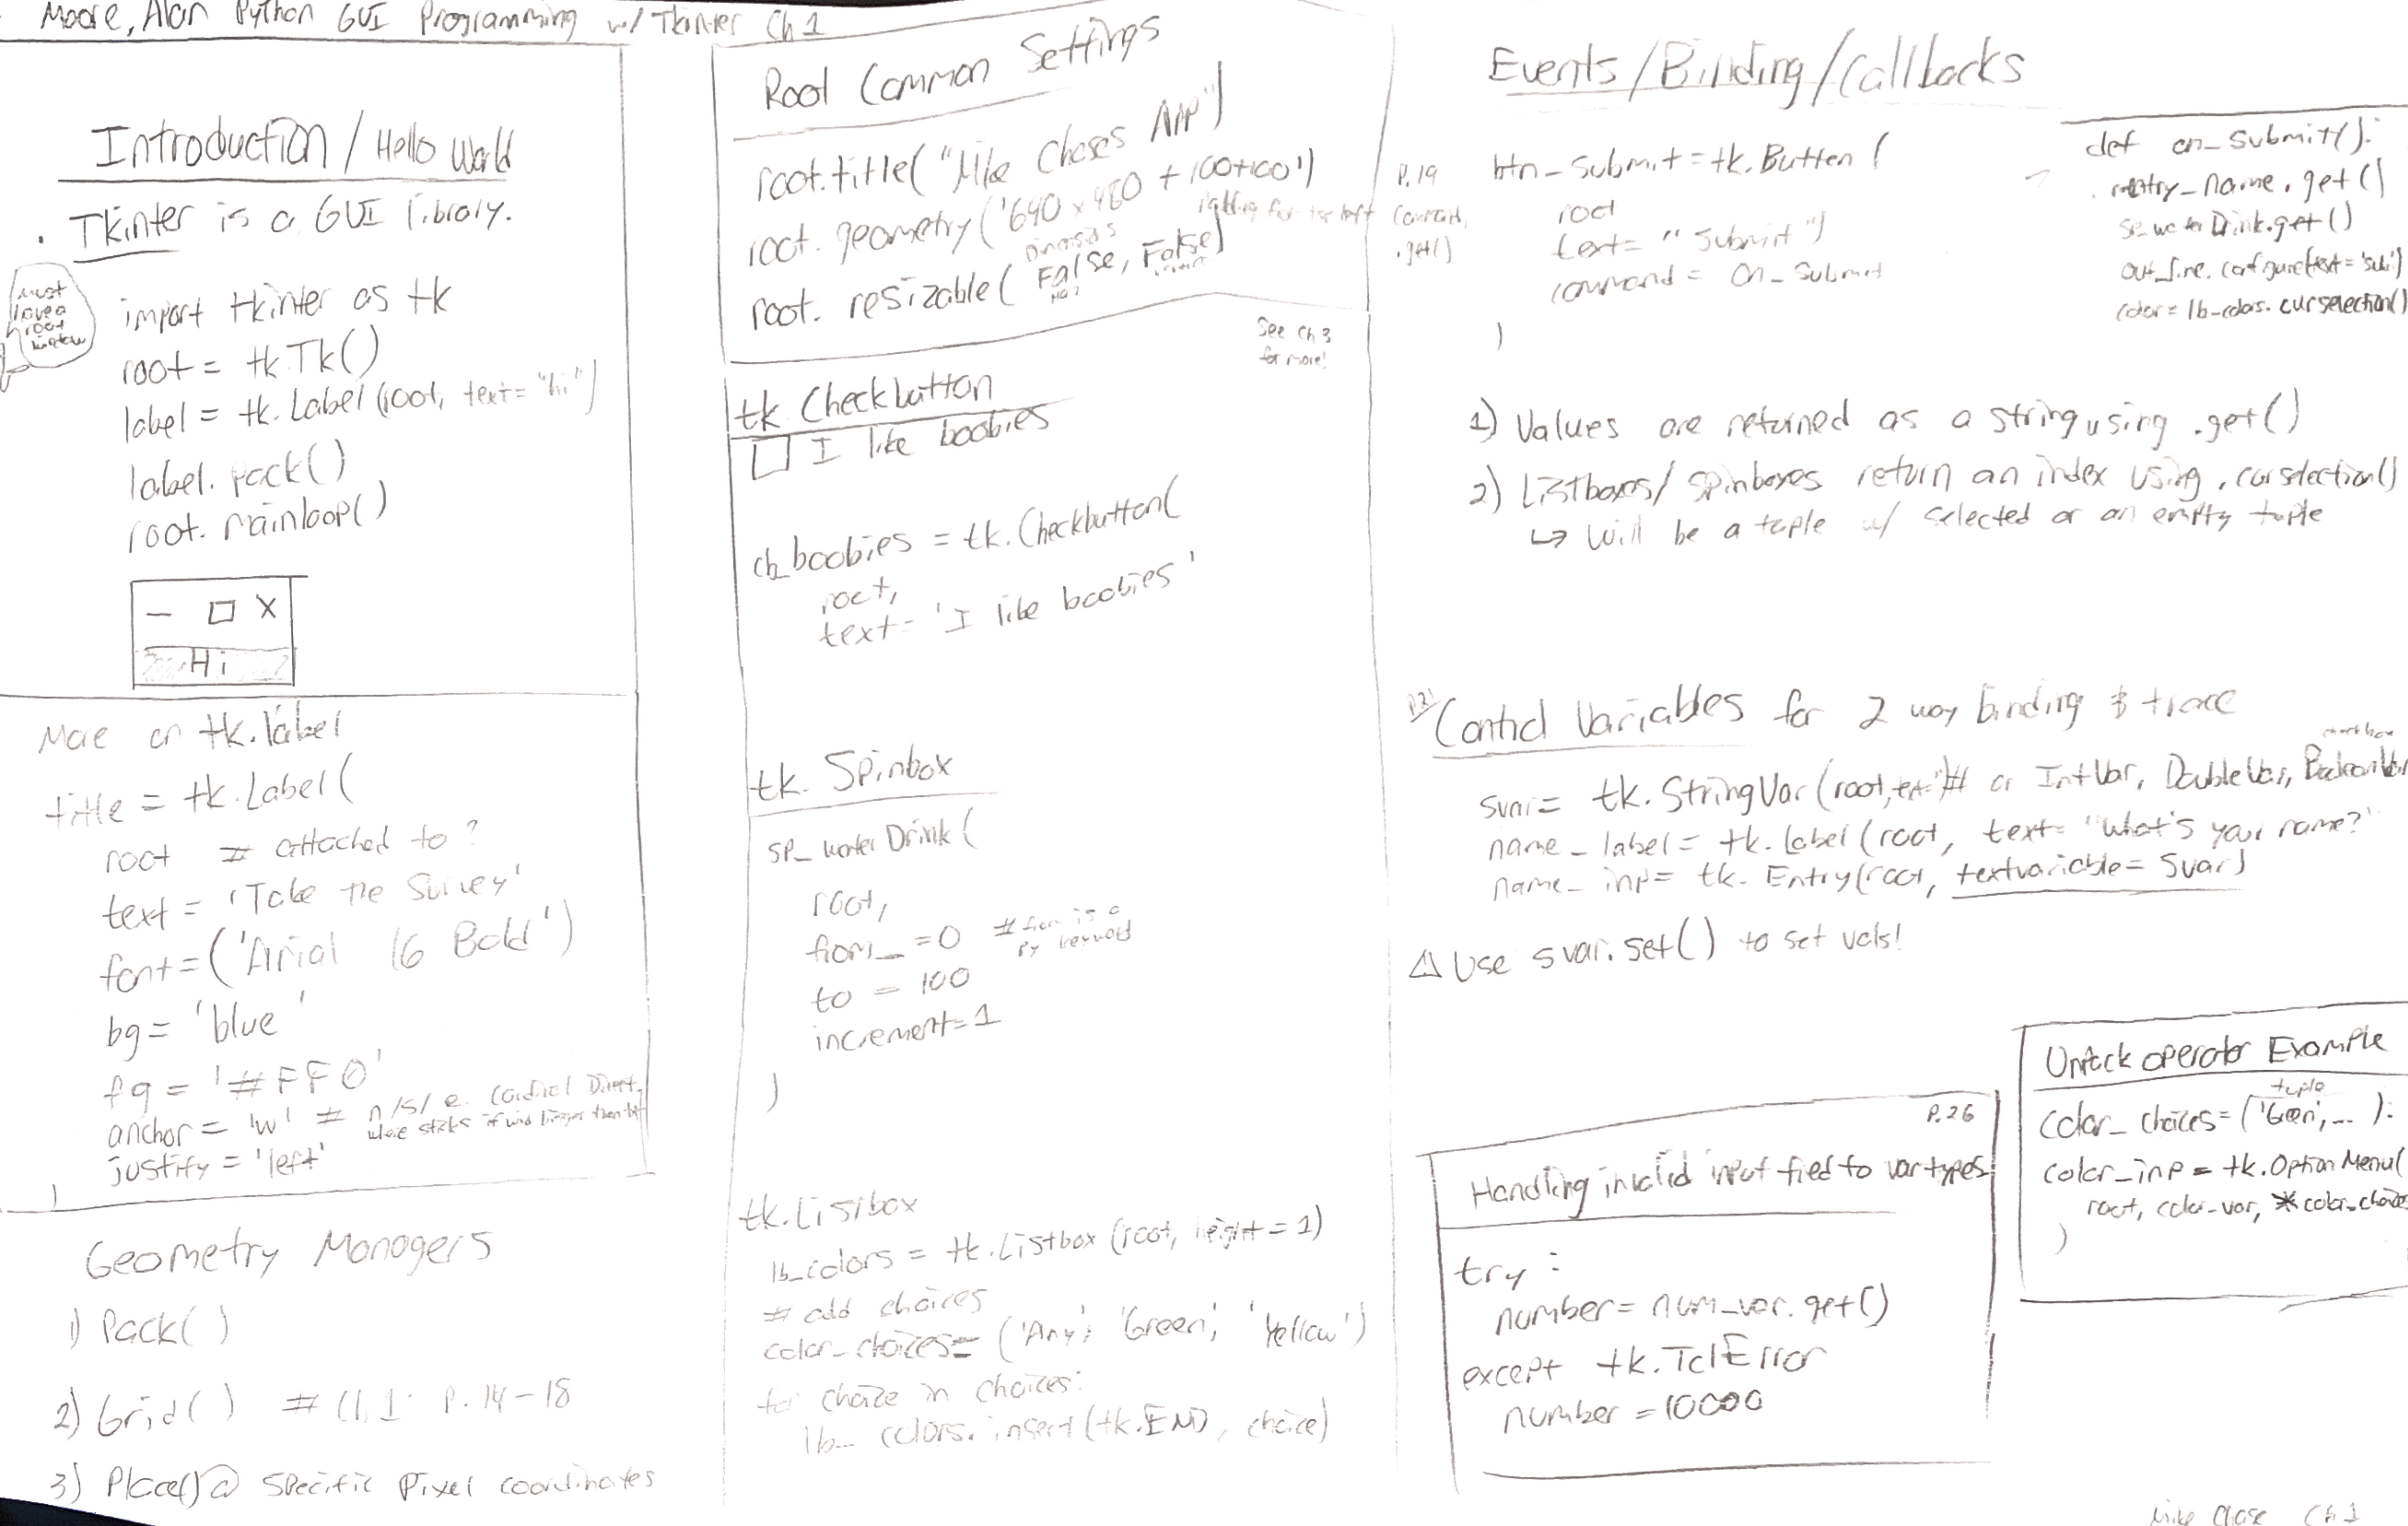 Moore, Alan Python GUI Programming w/ Tkinter Ch 1
Introduction / Hello World
. Tkinter is a GUI library.
Must
have a
root
window
import tkinter as tk
root = tk.Tk()
label = tk.Label(root, text="hi")
label.pack()
root.mainloop()
— □ X
Hi
More on tk.label
title = tk.Label(
root # attached to?
text = 'Take the Survey'
font=('Arial 16 Bold')
bg= 'blue'
fg = '#FF0'
anchor = 'w' # n/s/e. Cardinal Direct.
where sticks if wid bigger than
justify = 'left'
)
Geometry Managers
1) Pack()
2) Grid() # Ch 1 P. 14-18
3) Place() @ specific pixel coordinates
Root Common Settings
root.title("Mike Chases App")
root.geometry('640x480+100+100')
root.resizable(False, False)
See Ch 3
for more!
tk Checkbutton
□ I like boobies
cb_boobies = tk.Checkbutton(
root,
text= 'I like boobies'
tk. Spinbox
sp_waterDrink(
root,
from_=0 # from is a
py keyword
to = 100
increment=1
)
tk.Listbox
lb_colors = tk.Listbox(root, height=1)
# add choices
color_choices= ('Any', 'Green', 'Yellow')
for choize in choices:
lb_colors.insert(tk.END, choice)
Events/Binding/Callbacks
P.19
.get()
btn_submit = tk.Button(
root
text= "Submit")
command = on_submit
)
def on_submit():
entry_name.get()
sp_waterDrink.get()
out_line.configure(text='sub')
color=lb_colors.curselection()
1) Values are returned as a string using .get()
2) Listboxes/Spinboxes return an index using .curselection()
↳ Will be a tuple w/ selected or an empty tuple
Control Variables for 2 way binding & trace
svar= tk.StringVar(root, # or IntVar, DoubleVar, BooleanVar
name_label= tk.Label(root, text= "What's your name?"
name_inp= tk.Entry(root, textvariable= svar)
⚠ Use svar.set() to set vals!
P.26
Handling invalid input tied to var types
try:
number= num_var.get()
except tk.TclError
number=10000
Unpack operator Example
tuple
color_choices=('Green',...):
color_inp = tk.OptionMenu(
root, color_var, *color_choices
)
Mike Chase Ch 1